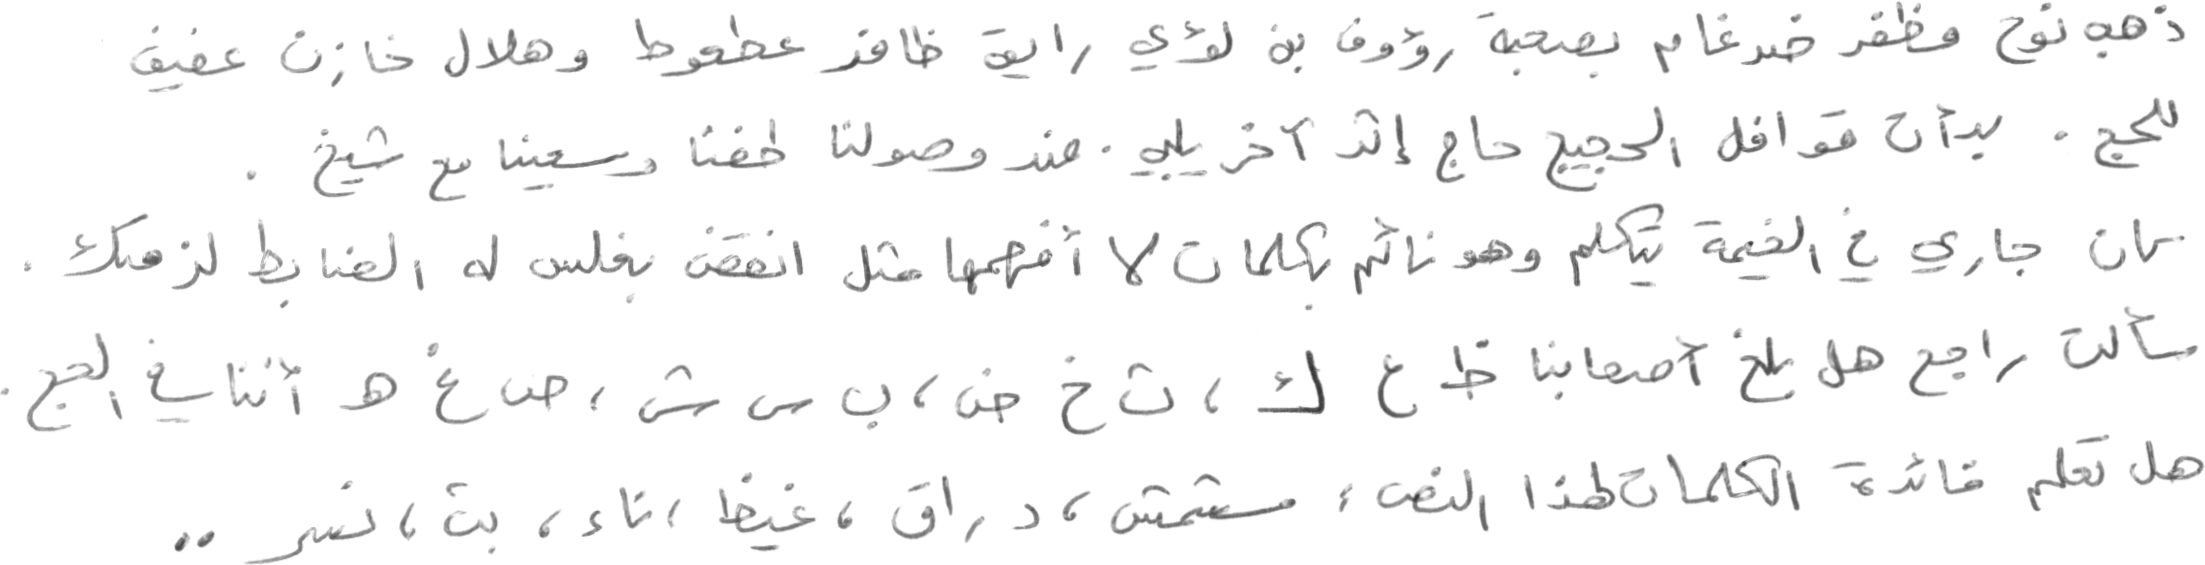 ذهب نوح مظفر ضرغام بصحبة رؤوف بن لؤي رايق ظافر عطعوط وهلال خازن عفيف
للحج . بدأت قوافل الحجيج حاج إثر آخر يلبي . عند وصولنا طفنا وسعينا مع شيخ .
كان جاري في الخيمة يتكلم وهو نائم بكلمات لا أفهمها مثل انقض بغلس له الضابط لزمتك .
سألت راجح هل بلغ أصحابنا ظ ع ك ، ث خ ض ، ب س ش ، ص غ ه أننا في الحج .
هل تعلم فائدة الكلمات لهذا النص ؛ مستمتش ، دراق ، غيظ ، ناء ، بث ، نسر ..